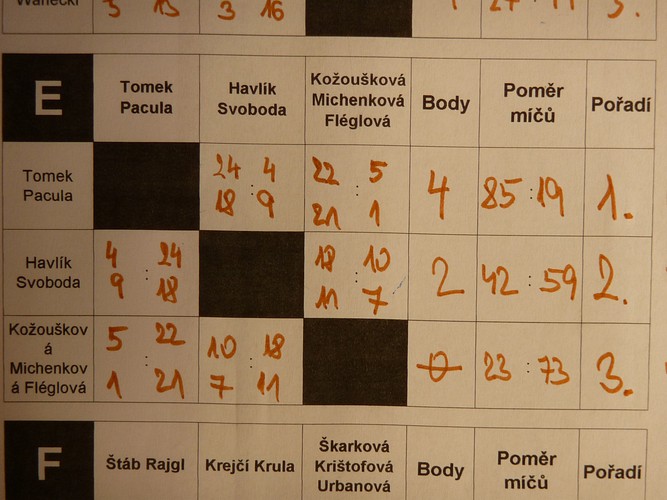 3 13 3 16
E Tomek Pacula Havlík Svoboda Kožoušková Michenková Fléglová Body Poměr míčů Pořadí
Tomek Pacula 24 : 4 22 : 5 4 85 : 19 1.
18 : 9 21 : 1
Havlík Svoboda 4 : 24 18 : 10 2 42 : 59 2.
9 : 18 11 : 7
Kožouškov á Michenkov á Fléglová 5 : 22 10 : 18 0 23 : 73 3.
1 : 21 7 : 11
F Štáb Rajgl Krejčí Krula Škarková Krištofová Urbanová Body Poměr míčů Pořadí